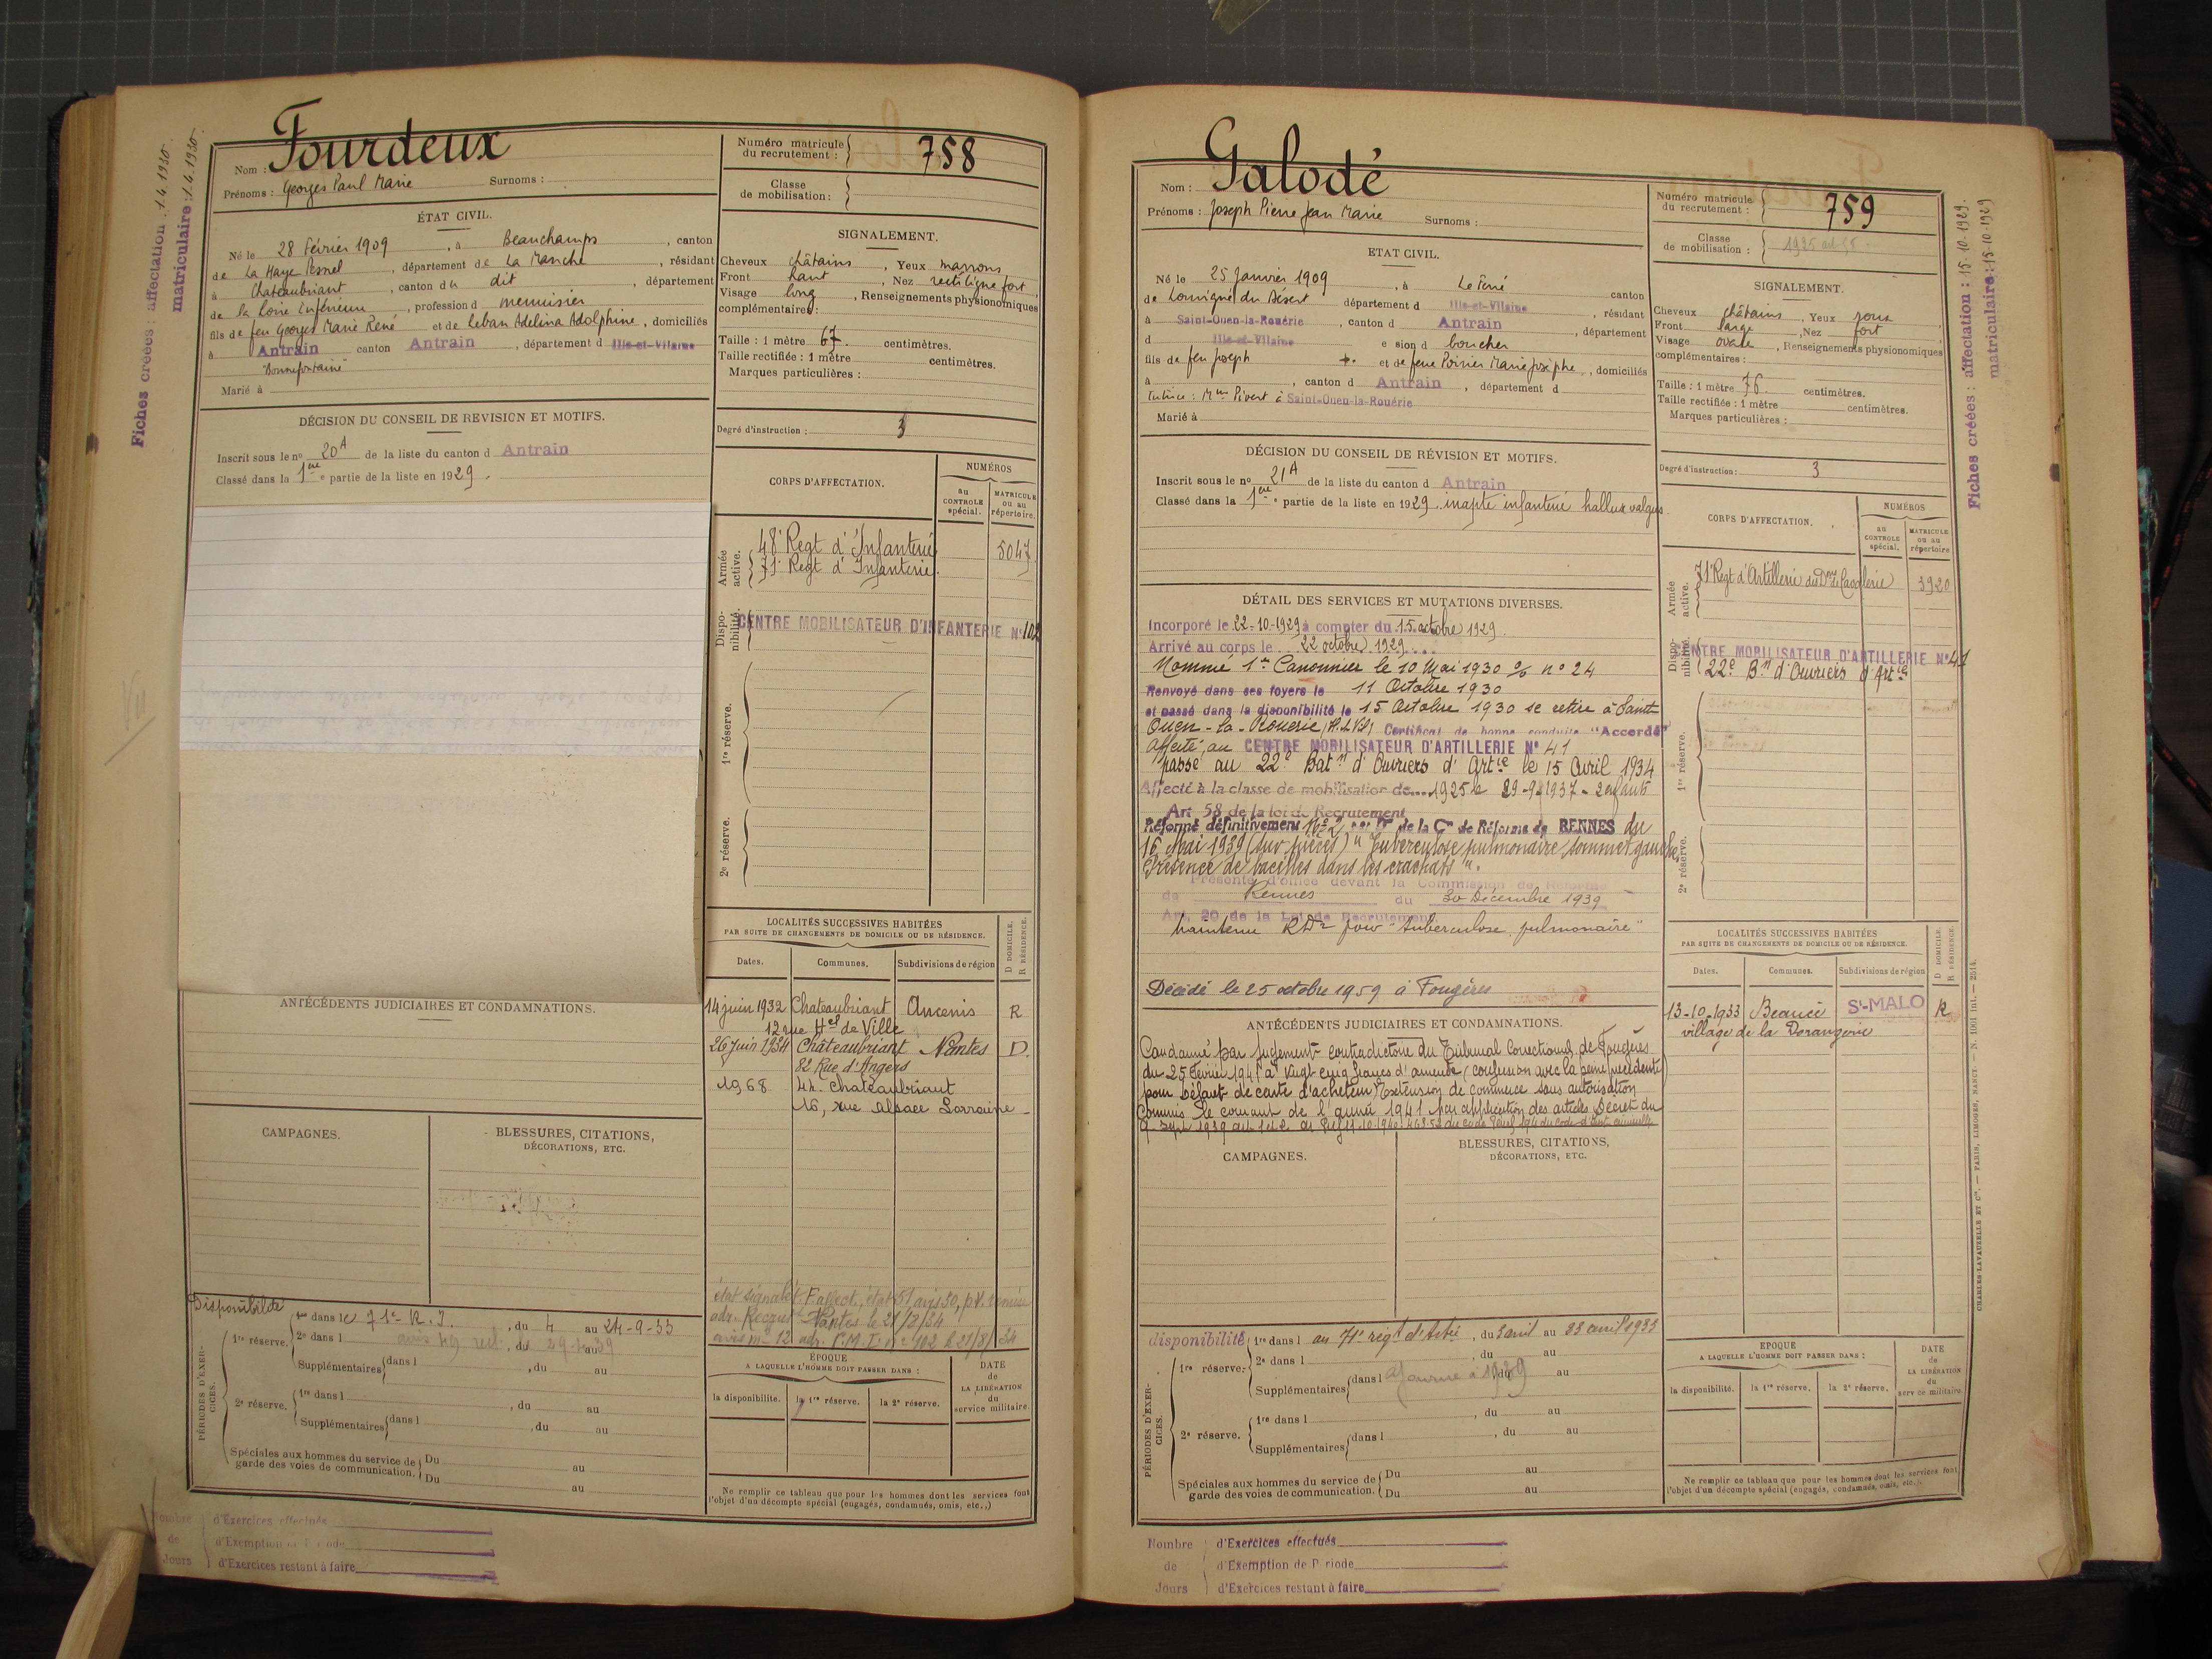 Fiches créées : affectation : 1.4.1930.
matriculaire : 1.4.1930.
Nom : Fourdeux
Prénoms : Georges Paul Marie Surnoms :
Numéro matricule du recrutement : 758
Classe de mobilisation :
ÉTAT CIVIL.
Né le 28 Février 1909, à Beauchamps, canton
de La Haye Pesnel, département de La Manche, résidant
à Chateaubriant, canton du dit, département
de la Loire Inférieure, profession d menuisier
fils de feu Georges Marie René et de Leban Adelina Adolphine, domiciliés
à Antrain canton Antrain, département d Ille-et-Vilaine
"Bonnefontaine"
Marié à
SIGNALEMENT.
Cheveux châtains, Yeux marrons
Front haut, Nez rectiligne fort
Visage long, Renseignements physionomiques
complémentaires :
Taille : 1 mètre 67. centimètres.
Taille rectifiée : 1 mètre centimètres.
Marques particulières :
Degré d'instruction : 3
DÉCISION DU CONSEIL DE REVISION ET MOTIFS.
Inscrit sous le no 20A de la liste du canton d Antrain
Classé dans la 1ère e partie de la liste en 1929.
CORPS D'AFFECTATION.
NUMÉROS
au CONTROLE spécial.
MATRICULE ou au répertoire.
Armée active.
48e Regt d'Infanterie 5047
71e Regt d'Infanterie.
Disponibilité.
CENTRE MOBILISATEUR D'INFANTERIE No 102
1re réserve.
2e réserve.
LOCALITÉS SUCCESSIVES HABITÉES
PAR SUITE DE CHANGEMENTS DE DOMICILE OU DE RÉSIDENCE.
D DOMICILE.
R RÉSIDENCE.
Dates. Communes. Subdivisions de région
14 juin 1932 Chateaubriant Ancenis R
12 rue Hel de Ville
26 juin 1934 Châteaubriant Nantes D.
82 Rue d'Angers
1968 44. Chateaubriant
16, rue Alsace Lorraine
ANTÉCÉDENTS JUDICIAIRES ET CONDAMNATIONS.
CAMPAGNES.
BLESSURES, CITATIONS,
DÉCORATIONS, ETC.
Disponibilité
PÉRIODES D'EXERCICES.
1re réserve. 1re dans le 71e R.I., du 4 au 24-9-33
2e dans l, du au
Supplémentaires dans l, du au
2e réserve. 1re dans l, du au
Supplémentaires dans l, du au
Spéciales aux hommes du service de garde des voies de communication. Du au
Du au
adr. Recrut Nantes le 21/8/34
avis m 12 adr. C.M.I. n° 102 le 21/8/34
ÉPOQUE
A LAQUELLE L'HOMME DOIT PASSER DANS :
la disponibilité. la 1re réserve. la 2e réserve.
DATE de LA LIBÉRATION du service militaire.
Ne remplir ce tableau que pour les hommes dont les services font
l'objet d'un décompte spécial (engagés, condamnés, omis, etc.,)
Nombre de Jours
d'Exercices effectués
d'Exemption de Période
d'Exercices restant à faire
Nom : Galodé
Prénoms : Joseph Pierre Jean Marie Surnoms :
Numéro matricule du recrutement : 759
Classe de mobilisation :
ETAT CIVIL.
Né le 25 Janvier 1909, à Le Ferré canton
de Louvigné du Désert département d Ille-et-Vilaine, résidant
à Saint-Ouen-la-Rouërie, canton d Antrain, département
d Ille-et-Vilaine e sion d boucher
fils de feu Joseph +. et de feue Poirier Marie Josèphe, domiciliés
à, canton d Antrain, département d
tutrice : Mme Pivert à Saint-Ouen-la-Rouërie
Marié à
SIGNALEMENT.
Cheveux châtains, Yeux roux
Front large, Nez fort
Visage ovale, Renseignements physionomiques
complémentaires :
Taille : 1 mètre 76. centimètres.
Taille rectifiée : 1 mètre centimètres.
Marques particulières :
Degré d'instruction : 3
Fiches créées : affectation : 15.10.1929.
matriculaire : 15.10.1929
DÉCISION DU CONSEIL DE RÉVISION ET MOTIFS.
Inscrit sous le no 21A de la liste du canton d Antrain
Classé dans la 1ère e partie de la liste en 1929. inapte infanterie hallux valgus.
DÉTAIL DES SERVICES ET MUTATIONS DIVERSES.
Incorporé le 22-10-1929 à compter du 15 octobre 1929.
Arrivé au corps le 22 octobre 1929
Nommé 1er Canonnier le 10 Mai 1930 o/o n° 24
Renvoyé dans ses foyers le 11 Octobre 1930
et passé dans la disponibilité le 15 Octobre 1930 se retire à Saint
Ouen-la-Rouerie (I.&Vil) Certificat de bonne conduite "Accordé"
Affecté au CENTRE MOBILISATEUR D'ARTILLERIE N° 41
passé au 22e Batn d'Ouvriers d'Artie le 15 Avril 1934
Affecté à la classe de mobilisation de 1925 le 29-9-1937 - 2 enfants
Art 58 de la loi de Recrutement
Réformé définitivement No 2 par Don de la Con de Réforme de RENNES du
16 Mai 1939 (sur pièces) "Tuberculose pulmonaire sommet gauche.
Présence de bacilles dans les crachats".
Présenté d'office devant la Commission de Réforme
de Rennes du 30 Décembre 1939
Art. 20 de la Loi de Recrutement
Maintenu RD2 pour "tuberculose pulmonaire"
Décédé le 25 octobre 1959 à Fougères
CORPS D'AFFECTATION.
NUMÉROS
au CONTROLE spécial.
MATRICULE ou au répertoire
Armée active.
71e Regt d'Artillerie de Don de Cavalerie 3920
Disponibilité.
CENTRE MOBILISATEUR D'ARTILLERIE No 41
22e Bn d'Ouvriers d'Artie
1re réserve.
2e réserve.
LOCALITÉS SUCCESSIVES HABITÉES
PAR SUITE DE CHANGEMENTS DE DOMICILE OU DE RÉSIDENCE.
D DOMICILE.
R RÉSIDENCE.
Dates. Communes. Subdivisions de région
13-10-1933 Beaucé St-MALO R
village de la Dorangerie
ANTÉCÉDENTS JUDICIAIRES ET CONDAMNATIONS.
Condamné par jugement contradictoire du Tribunal Correctionnel de Fougères
du 25 Février 1941 à vingt cinq francs d'amende (confusion avec la peine précédente)
pour Défaut de carte d'acheteur Extension de commerce sans autorisation
Commis le courant de l'année 1941 par application des articles Décret du
9 Sept 1939 art 1 et 2
CAMPAGNES.
BLESSURES, CITATIONS,
DÉCORATIONS, ETC.
disponibilité
PÉRIODES D'EXERCICES.
1re réserve. 1re dans l au 71e régt d'Artie, du 3 avril au 23 avril 1933
2e dans l, du au
Supplémentaires dans l Ajourné à 1939 au
2e réserve. 1re dans l, du au
Supplémentaires dans l, du au
Spéciales aux hommes du service de garde des voies de communication. Du au
Du au
EPOQUE
A LAQUELLE L'HOMME DOIT PASSER DANS :
la disponibilité. la 1re réserve. la 2e réserve.
DATE de LA LIBÉRATION du service militaire
Ne remplir ce tableau que pour les hommes dont les services font
l'objet d'un décompte spécial (engagés, condamnés, omis, etc.).
CHARLES-LAVAUZELLE ET Cie. — PARIS, LIMOGES, NANCY. — N. 1001 bis. — 2514.
Nombre de Jours
d'Exercices effectués
d'Exemption de Période
d'Exercices restant à faire